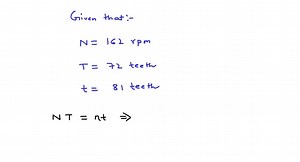 Given that:-
N = 162 rpm
T = 72 teeth
t = 81 teeth
NT = nt ⇒